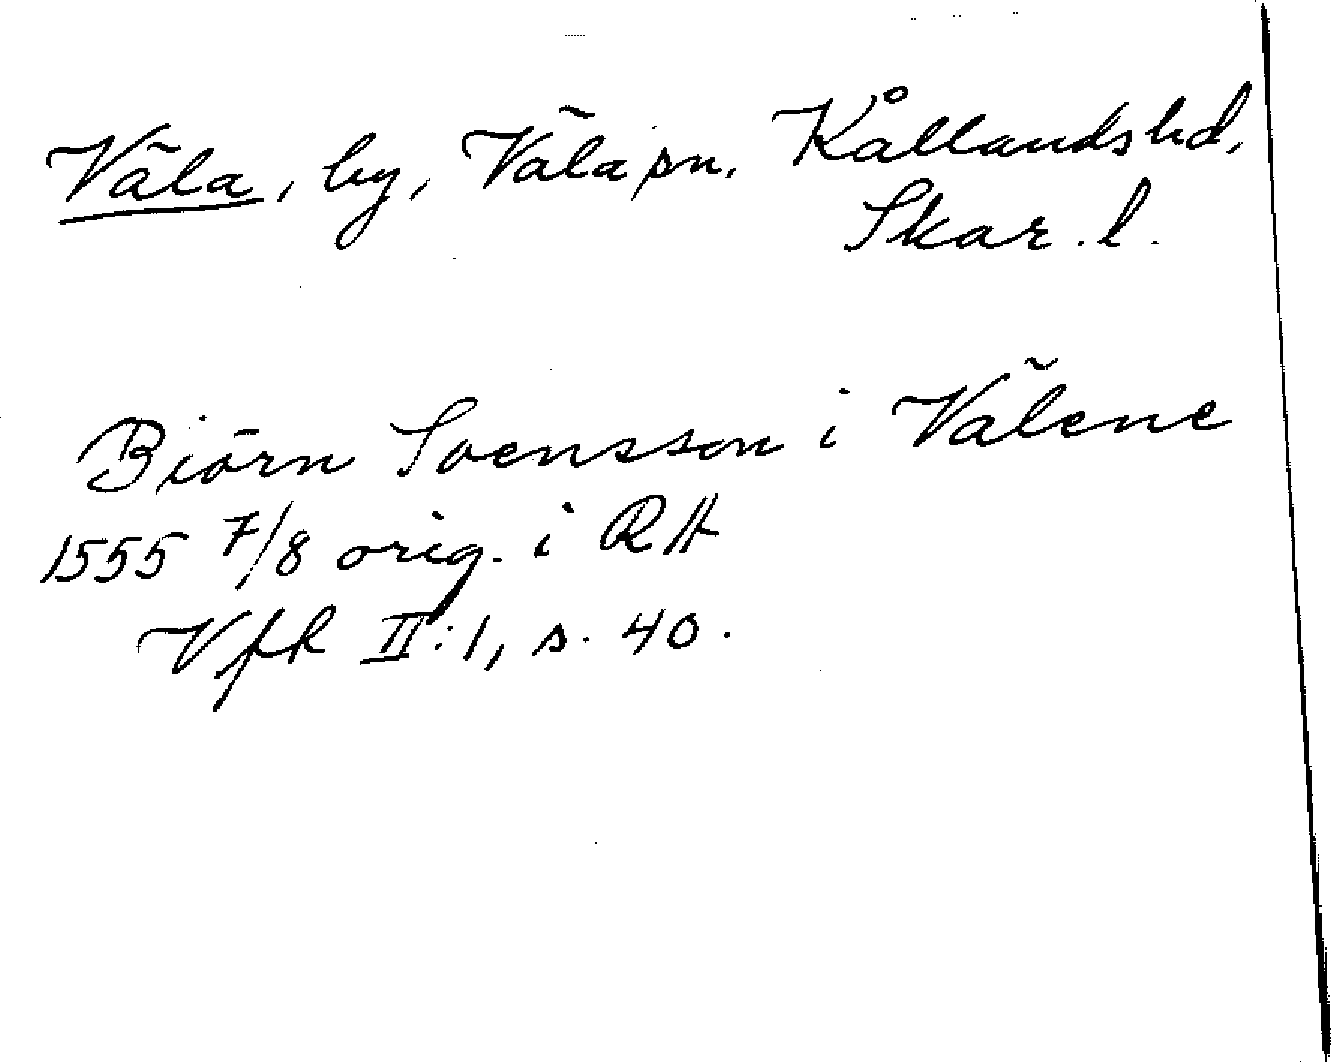 Väla, by, Väla sn. Kållands hd,
Skar. l.
Biörn Svensson i Välene
1555 7/8 orig. i RA
Vfr II:1, s. 40.